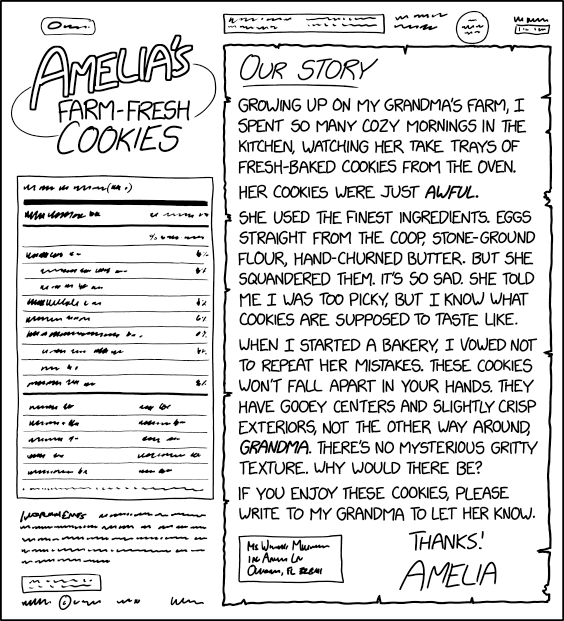 AMELIA'S
FARM-FRESH
COOKIES
INGREDIENTS
OUR STORY
GROWING UP ON MY GRANDMA'S FARM, I
SPENT SO MANY COZY MORNINGS IN THE
KITCHEN, WATCHING HER TAKE TRAYS OF
FRESH-BAKED COOKIES FROM THE OVEN.
HER COOKIES WERE JUST AWFUL.
SHE USED THE FINEST INGREDIENTS. EGGS
STRAIGHT FROM THE COOP, STONE-GROUND
FLOUR, HAND-CHURNED BUTTER. BUT SHE
SQUANDERED THEM. IT'S SO SAD. SHE TOLD
ME I WAS TOO PICKY, BUT I KNOW WHAT
COOKIES ARE SUPPOSED TO TASTE LIKE.
WHEN I STARTED A BAKERY, I VOWED NOT
TO REPEAT HER MISTAKES. THESE COOKIES
WON'T FALL APART IN YOUR HANDS. THEY
HAVE GOOEY CENTERS AND SLIGHTLY CRISP
EXTERIORS, NOT THE OTHER WAY AROUND,
GRANDMA. THERE'S NO MYSTERIOUS GRITTY
TEXTURE. WHY WOULD THERE BE?
IF YOU ENJOY THESE COOKIES, PLEASE
WRITE TO MY GRANDMA TO LET HER KNOW.
MS
FL
THANKS!
AMELIA